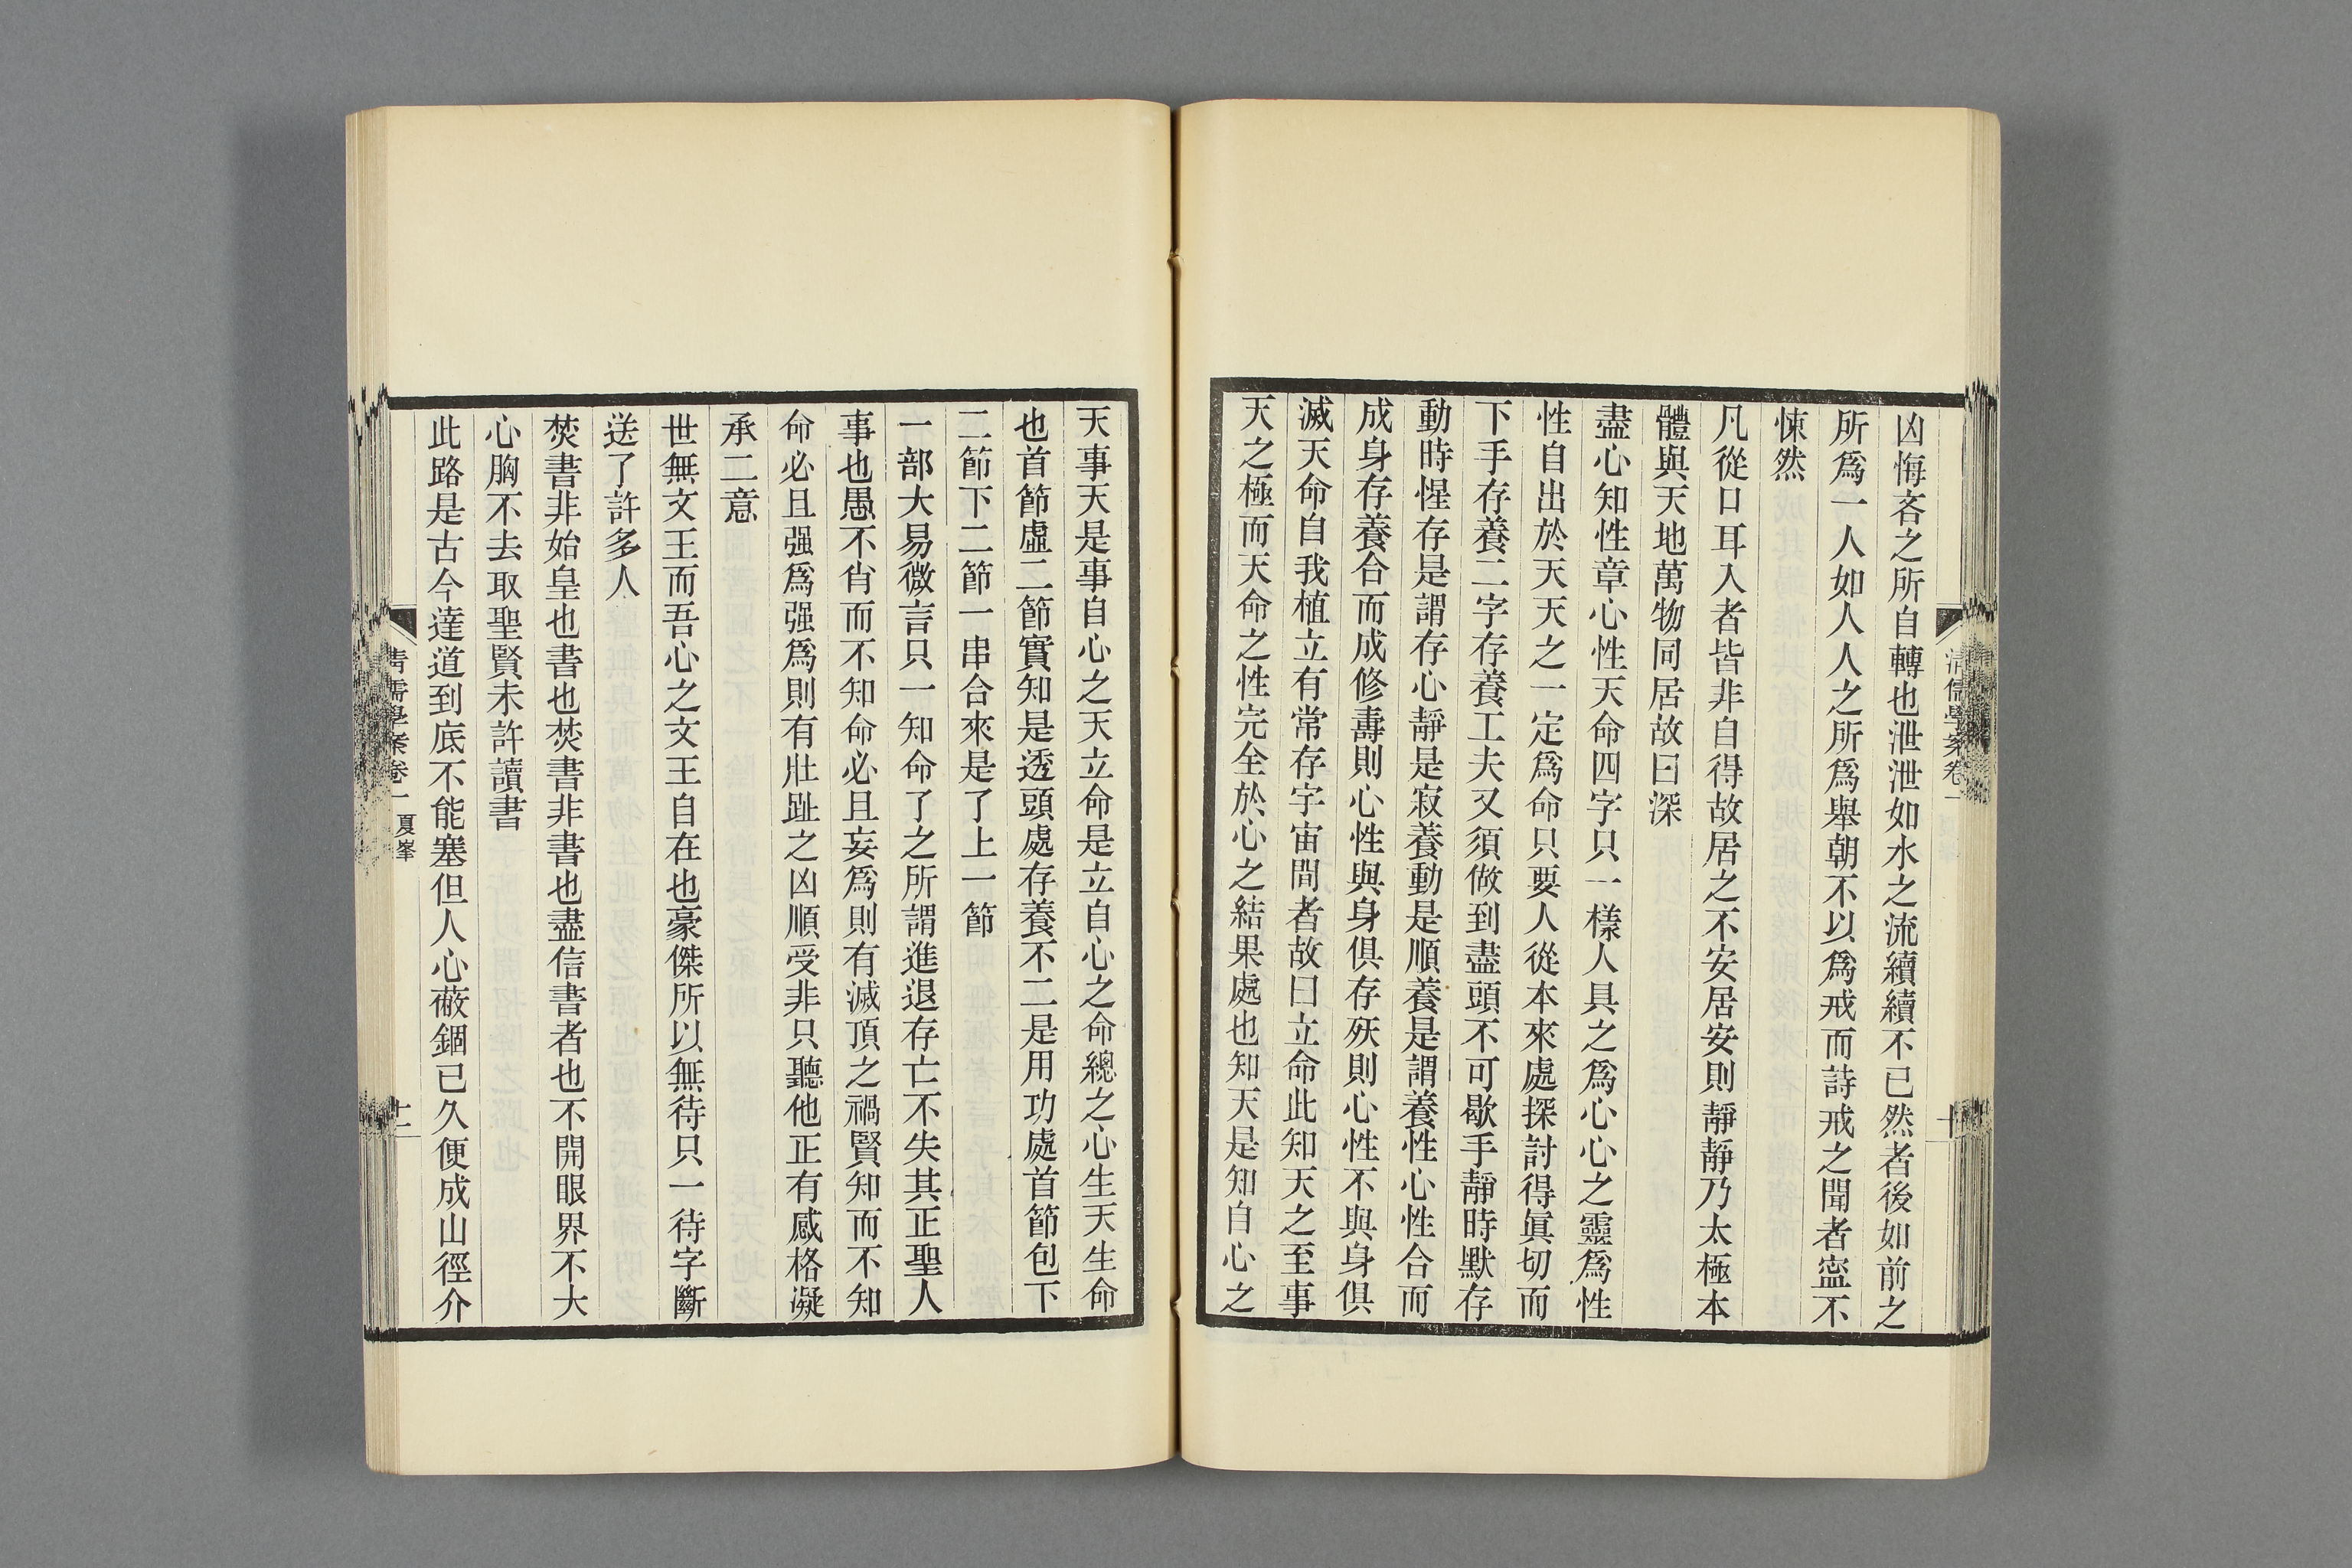 凶悔吝之所自轉也泄泄如水之流續續不已然者後如前之
所爲一人如人人之所爲舉朝不以爲戒而詩戒之聞者寍不
悚然
凡從口耳入者皆非自得故居之不安居安則靜靜乃太極本
體與天地萬物同居故曰深
盡心知性章心性天命四字只一樣人具之爲心心之靈爲性
性自出於天天之一定爲命只要人從本來處探討得眞切而
下手存養二字存養工夫又須做到盡頭不可歇手靜時默存
動時惺存是謂存心靜是寂養動是順養是謂養性心性合而
成身存養合而成修壽則心性與身俱存殀則心性不與身俱
滅天命自我植立有常存宇宙間者故曰立命此知天之至事
天之極而天命之性完全於心之結果處也知天是知自心之
清儒學案卷一
十
天事天是事自心之天立命是立自心之命總之心生天生命
也首節虛二節實知是透頭處存養不二是用功處首節包下
二節下二節一串合來是了上一節
一部大易微言只一知命了之所謂進退存亡不失其正聖人
事也愚不肖而不知命必且妄爲則有滅頂之禍賢知而不知
命必且强爲强爲則有壯趾之凶順受非只聽他正有感格凝
承二意
世無文王而吾心之文王自在也豪傑所以無待只一待字斷
送了許多人
焚書非始皇也書也焚書非書也盡信書者也不開眼界不大
心胸不去取聖賢未許讀書
此路是古今達道到底不能塞但人心蔽錮已久便成山徑介
清儒學案卷一 夏峯